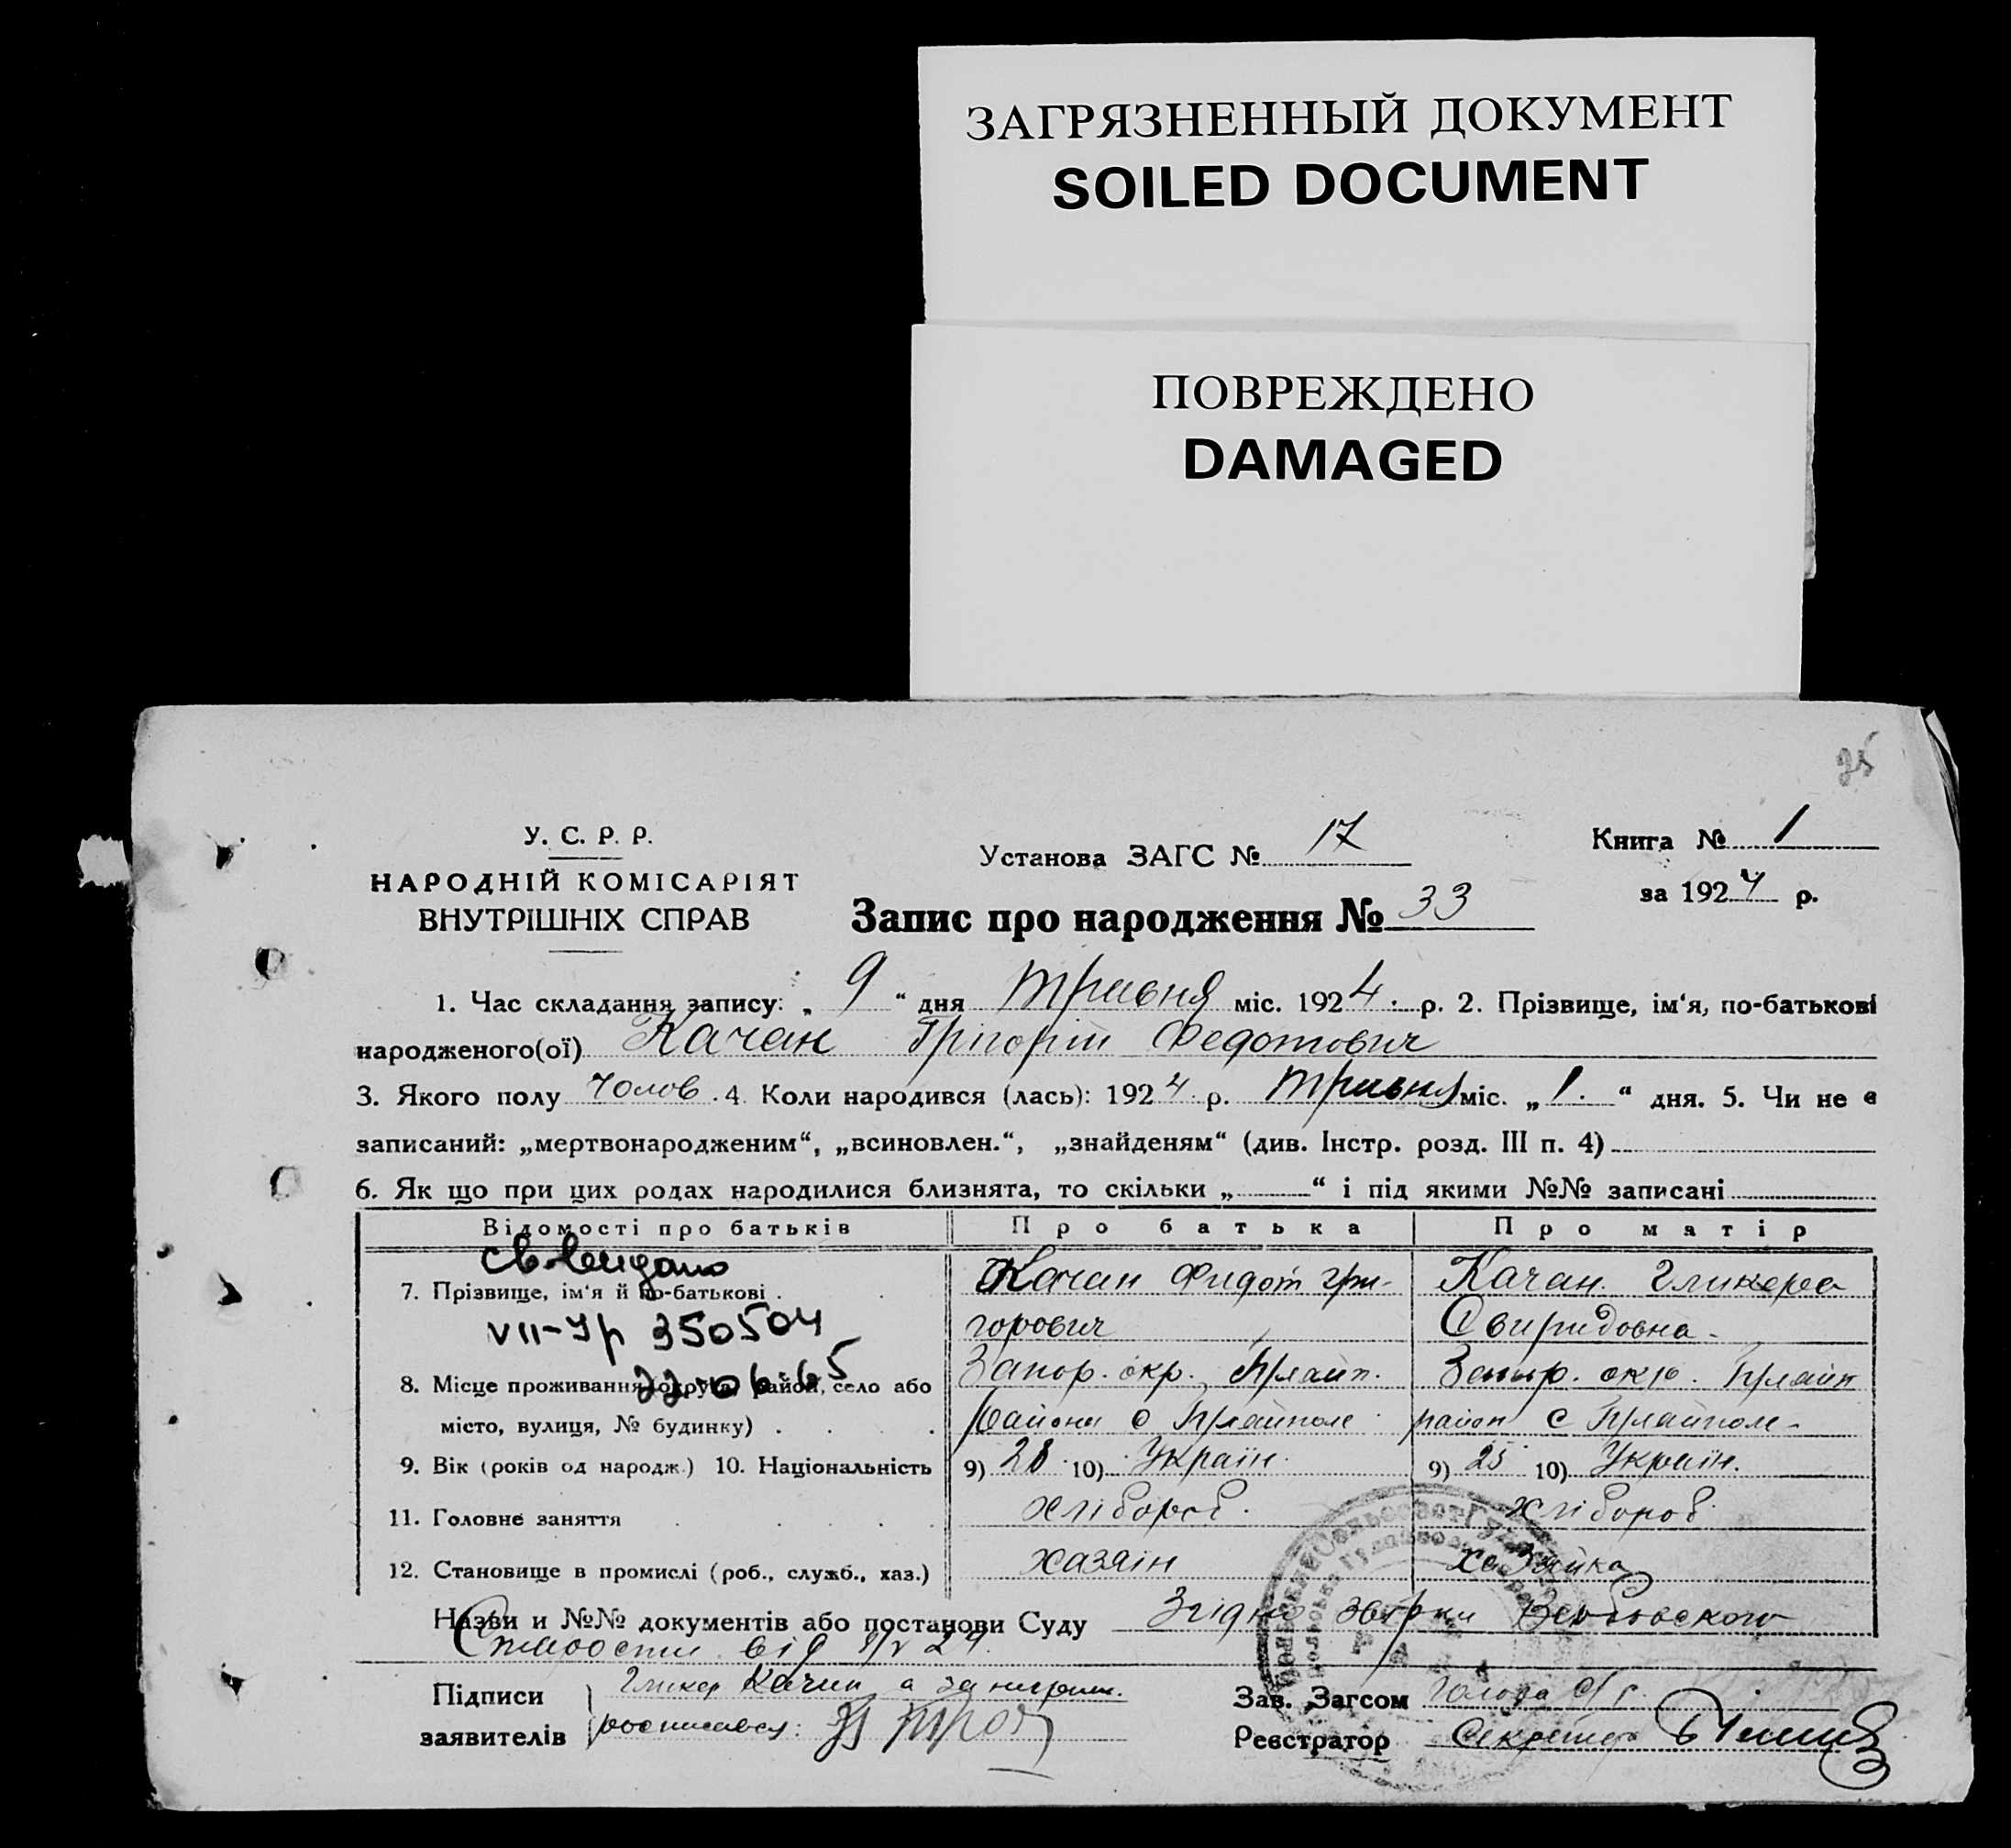 ЗАГРЯЗНЕННЫЙ ДОКУМЕНТ
SOILED DOCUMENT
ПОВРЕЖДЕНО
DAMAGED
35
У. С. Р. Р.
НАРОДНІЙ КОМІСАРІЯТ
ВНУТРІШНІХ СПРАВ
Установа ЗАГС № 17
Книга № 1
за 1924 р.
Запис про народження № 33
1. Час складання запису: „ 9 “ дня Травня міс. 1924 р. 2. Прізвище, ім‘я, по-батькові
народженого(ої) Качан Григорій Федотович
3. Якого полу Чолов. 4. Коли народився (лась): 1924 р. Травня міс. „ 1. “ дня. 5. Чи не є
записаний: „мертвонародженим“, „всиновлен.“, „знайденям“ (див. Інстр. розд. III п. 4)
6. Як що при цих родах народилися близнята, то скільки „ “ і під якими №№ записані
Відомості про батьків Про батька Про матір
св-во видано
7. Прізвище, ім‘я й по-батькові . Качан Федот Гри- Качан Гликера
VII-УР 350504 горович Свиридовна
22-06-65
8. Місце проживання (округа, район, село або Запор. окр. Прлаип. Запор. окр.
місто, вулиця, № будинку) . района с район с
9. Вік (років од народж.) 10. Національність 9) 28 10) Україн. 9) 25 10) Україн.
11. Головне заняття хлібороб. хлібороб
12. Становище в промислі (роб., служб., хаз.) хазяін хазяйка
Назви и №№ документів або постанови Суду Згідно
від
Підписи Качан а за неграм. Зав. Загсом Голова с/г
заявителів росписався: Реєстратор Секретар